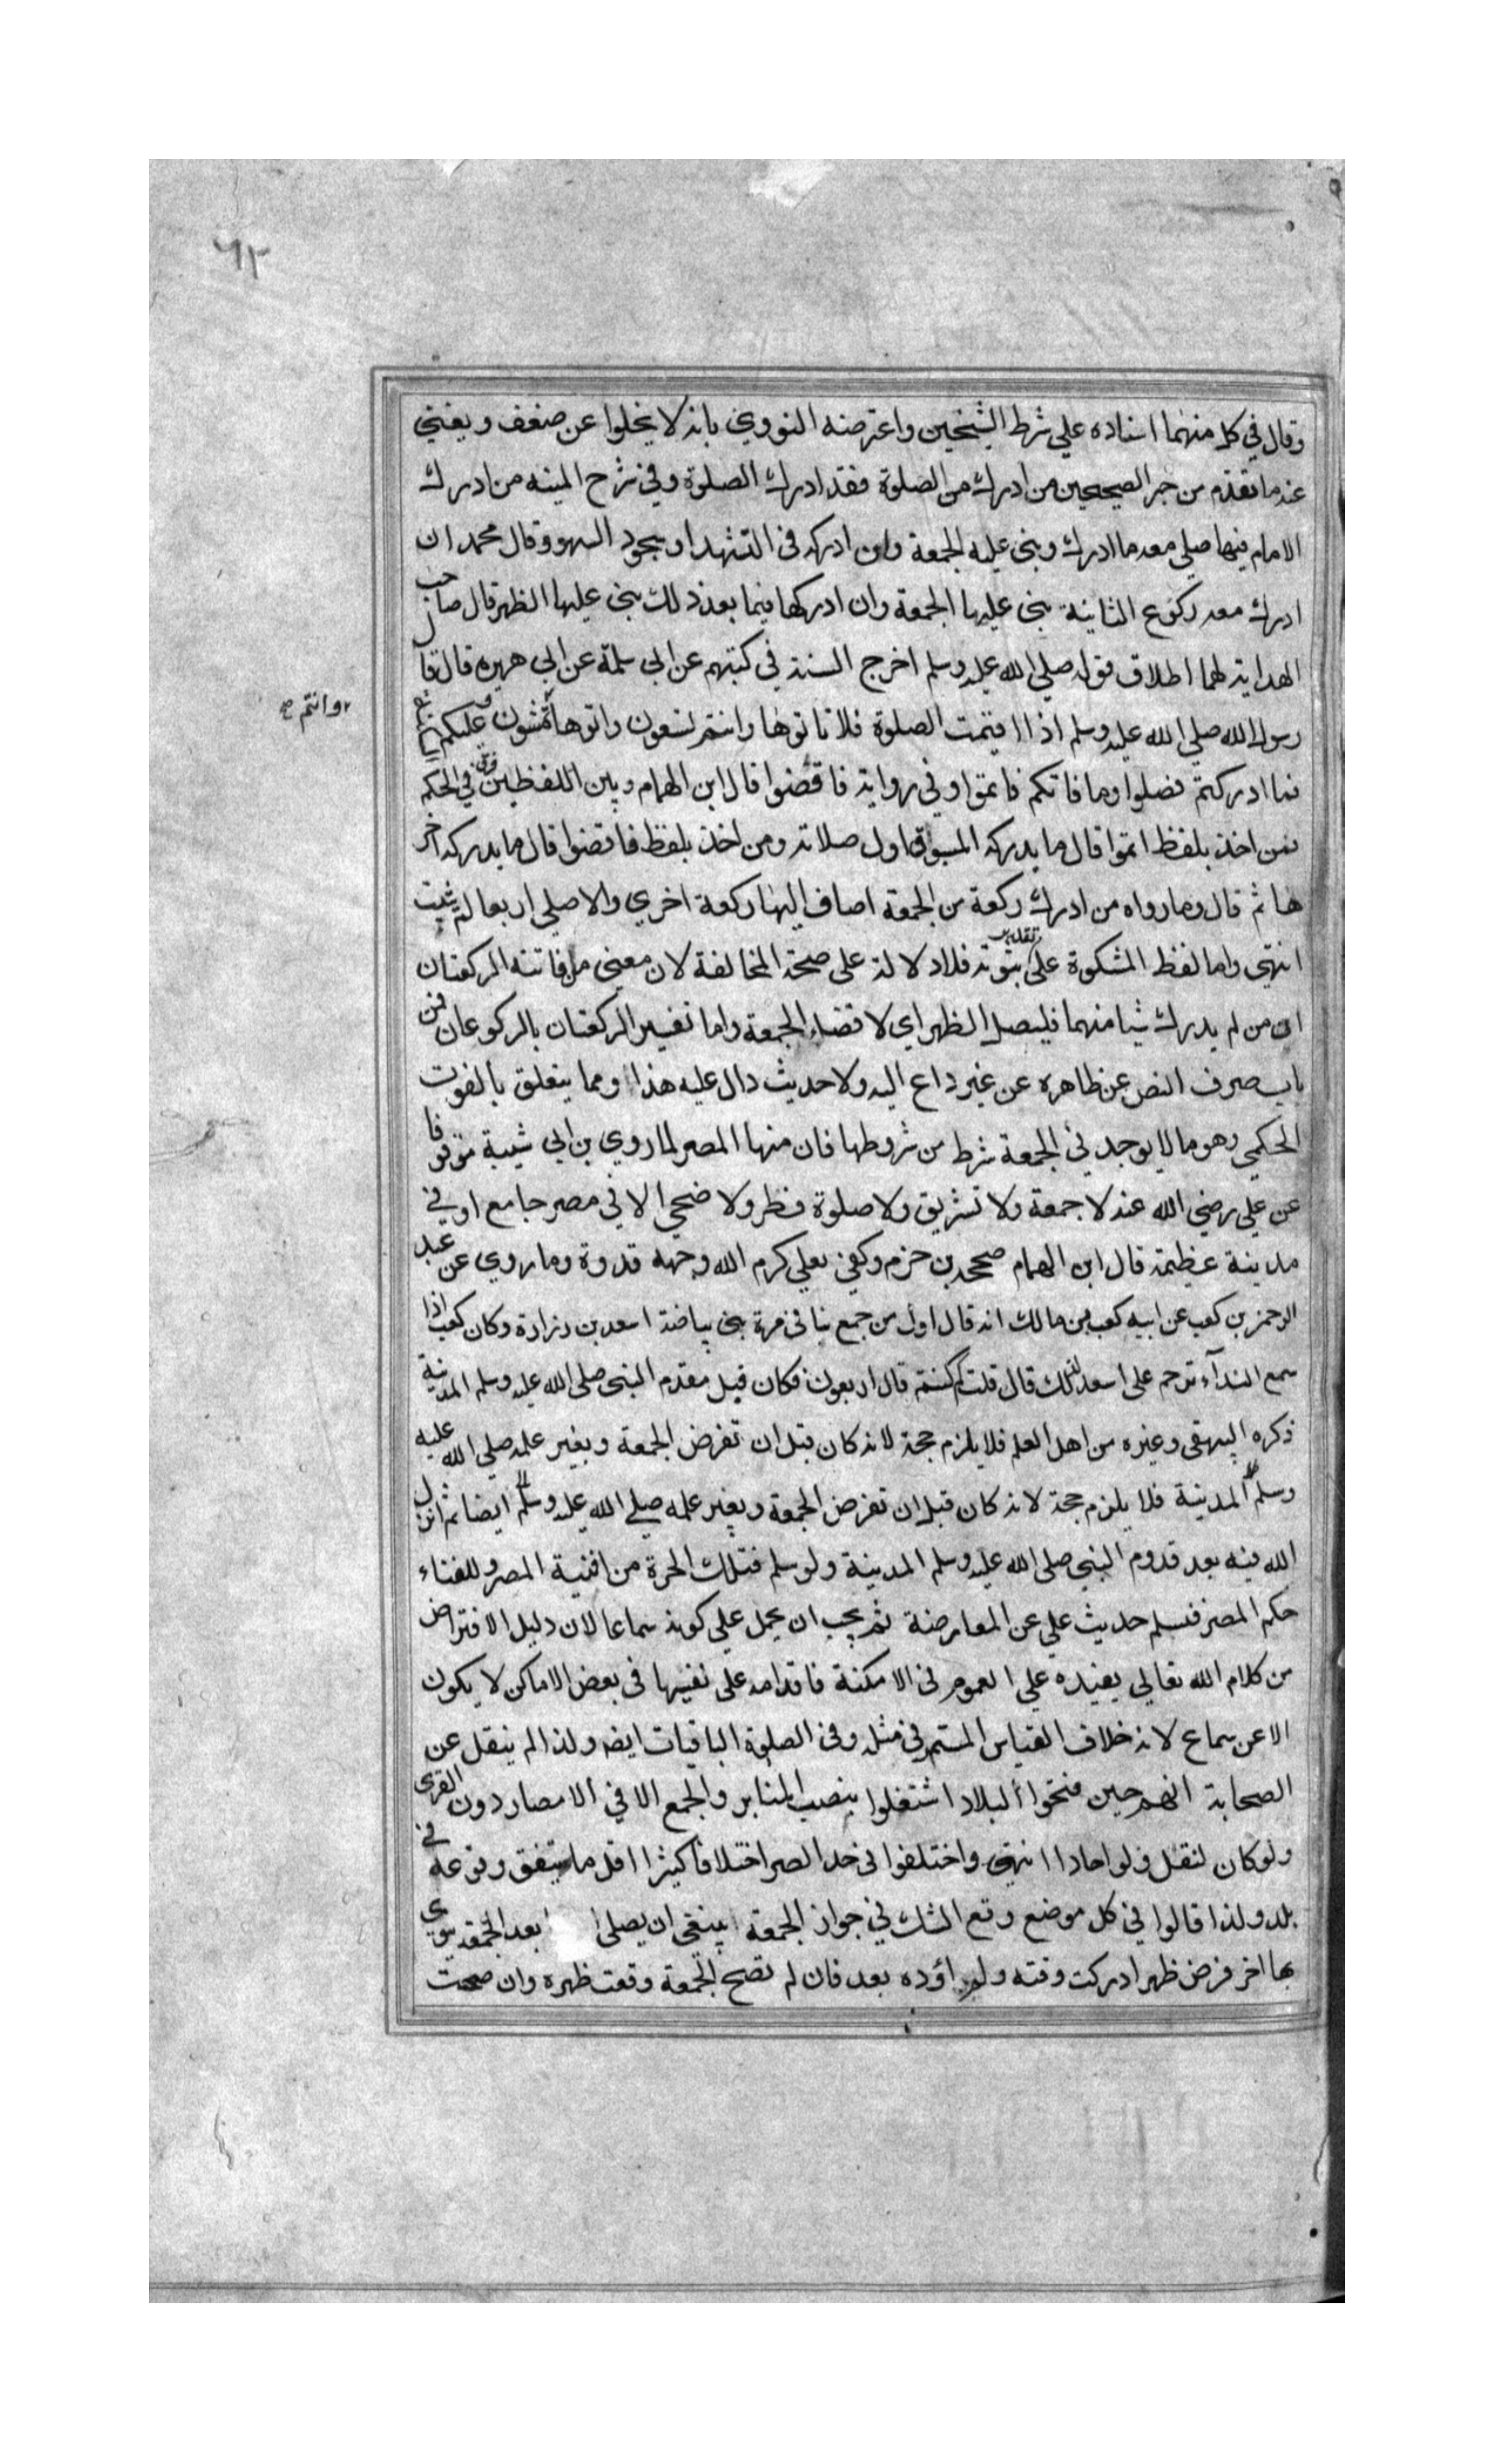 ٦٢
وقال في كل منهما اسناده علي شرط الشيخين واعترضه النووي بانه لا يخلوا عن ضعف ويغني
عنه ما تقدم من خبر الصحيحين من ادرك من الصلوة فقد ادرك الصلوة وفي شرح المنيه من ادرك
الامام فيها صلي معه ما ادرك وبني عليه الجمعة وان ادركه في التشهد او سجود السهو وقال محمد ان
ادرك معه ركوع الثانية بني عليها الجمعة وان ادركها فيما بعد ذلك بني عليها الظهر قال صاحب
الهداية لهما اطلاق قوله صلي الله عليه وسلم اخرج الستة في كتبهم عن ابي سلمة عن ابي هريره قال قال
رسول الله صلي الله عليه وسلم اذا اقيمت الصلوة فلا تاتوها وانتم تسعون واتوها تمشون وعليكم
وانتم صح
فما ادركتم فصلوا وما فاتكم فاتموا وفي رواية فاقضوا قال ابن الهمام وبين اللفظين فرق في الحكم
فمن اخذ بلفظ اتموا قال ما يدركه المسبوق اول صلاته ومن اخذ بلفظ فاقضوا قال ما يدركه اخر
ها ثم قال وما رواه من ادرك ركعة من الجمعة اضاف اليها ركعة اخري والا صلي اربعا لم يثبت
انتهي واما لفظ المشكوة علي تقدير ثبوته فلا دلالة علي صحة المخالفة لان معني من فاتته الركعتان
اي من لم يدرك شيا منهما فليصل الظهر اي لا قضاء الجمعة واما تفسير الركعتان بالركوعان فمن
باب صرف النص عن ظاهره عن غير داع اليه ولا حديث دال عليه هذا ومما يتعلق بالفوت
الحكمي وهو ما لا يوجد في الجمعة شرط من شروطها فان منها المصر لما روي بن ابي شيبة موقوفا
عن علي رضي الله عنه لا جمعة ولا تشريق ولا صلوة فطر ولا ضحي الا في مصر جامع او في
مدينة عظيمة قال ابن الهمام صححه بن حزم وكفي بعلي كرم الله وجهه قدوة وما روي عن عبد
الرحمن بن كعب عن ابيه كعب بن مالك انه قال اول من جمع بنا في حرة بني بياضة اسعد بن زرارة وكان كعب اذا
سمع النداء ترحم علي اسعد لذلك قال قلت كم كنتم قال اربعون فكان قبل مقدم النبي صلي الله عليه وسلم المدينة
ذكره البيهقي وغيره من اهل العلم فلا يلزم حجة لانه كان قبل ان تفرض الجمعة وبغير علمه صلي الله عليه
وسلم المدينة فلا يلزم حجة لانه كان قبل ان تفرض الجمعة وبغير علمه صلي الله عليه وسلم ايضا ثم انزل
الله فيه بعد قدوم النبي صلي الله عليه وسلم المدينة ولو سلم فتلك الحرة من افنية المصر وللفناء
حكم المصر فسلم حديث علي عن المعارضة ثم يجب ان يحمل علي كونه سماعا لان دليل الافتراض
من كلام الله تعالي يفيده علي العموم في الامكنة فاقدامه علي نفيها في بعض الاماكن لا يكون
الا عن سماع لانه خلاف القياس المستمر في مثله وفي الصلوة الباقيات ايضه ولذا لم ينقل عن
الصحابة انهم حين فتحوا البلاد اشتغلوا بنصب المنابر والجمع الا في الامصار دون القري
ولو كان لنقل ولو احادا انتهي واختلفوا في حد المصر اختلافا كثيرا اقل ما يتفق وقوعه في
بلد ولذا قالوا في كل موضع وقع الشك في جواز الجمعة ينبغي ان يصلي بعد الجمعة ينوي
بها اخر فرض ظهر ادركت وقته ولم اؤده بعد فان لم تصح الجمعة وقعت ظهره وان صحت